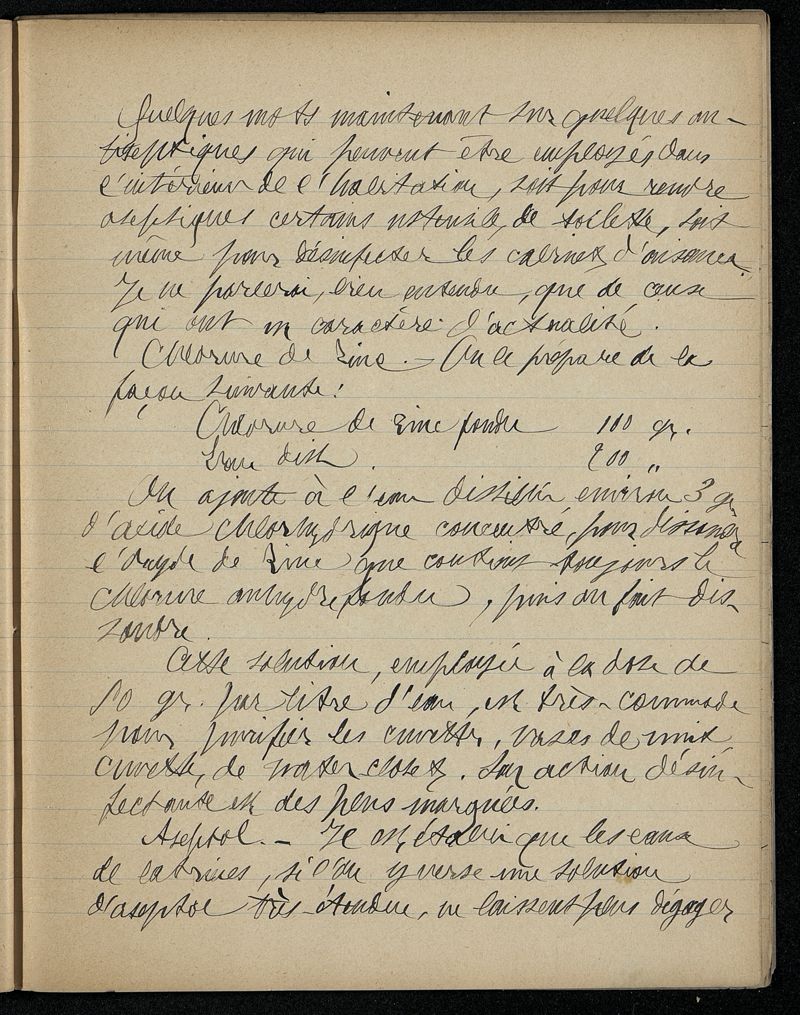 Quelques mots maintenant sur quelques an-
tiseptiques qui peuvent être employés dans
l'intérieur de l'habitation, soit pour rendre
aseptiques certains ustensiles de toilette, soit
même pour désinfecter les cabinets d'aisances.
Je ne parlerai, bien entendu, que de ceux
qui ont un caractère d'actualité.
Chlorure de Zinc. — On le prépare de la
façon suivante:
Chlorure de zinc fondu 100 gr.
Eau dist. 200 "
On ajoute à l'eau distillée environ 3 gr
d'acide chlorhydrique concentré, pour dissoudre
l'oxyde de zinc que contient toujours le
chlorure anhydre fondu, puis on fait dis-
soudre.
Cette solution, employée à la dose de
50 gr. par litre d'eau, est très-commode
pour purifier les cuvettes, vases de nuit,
cuvettes de water-closets. Son action désin-
fectante est des plus marquées.
Aseptol. — Il est établi que les eaux
de latrines, si l'on y verse une solution
d'aseptol très-étendue, ne laissent plus dégager